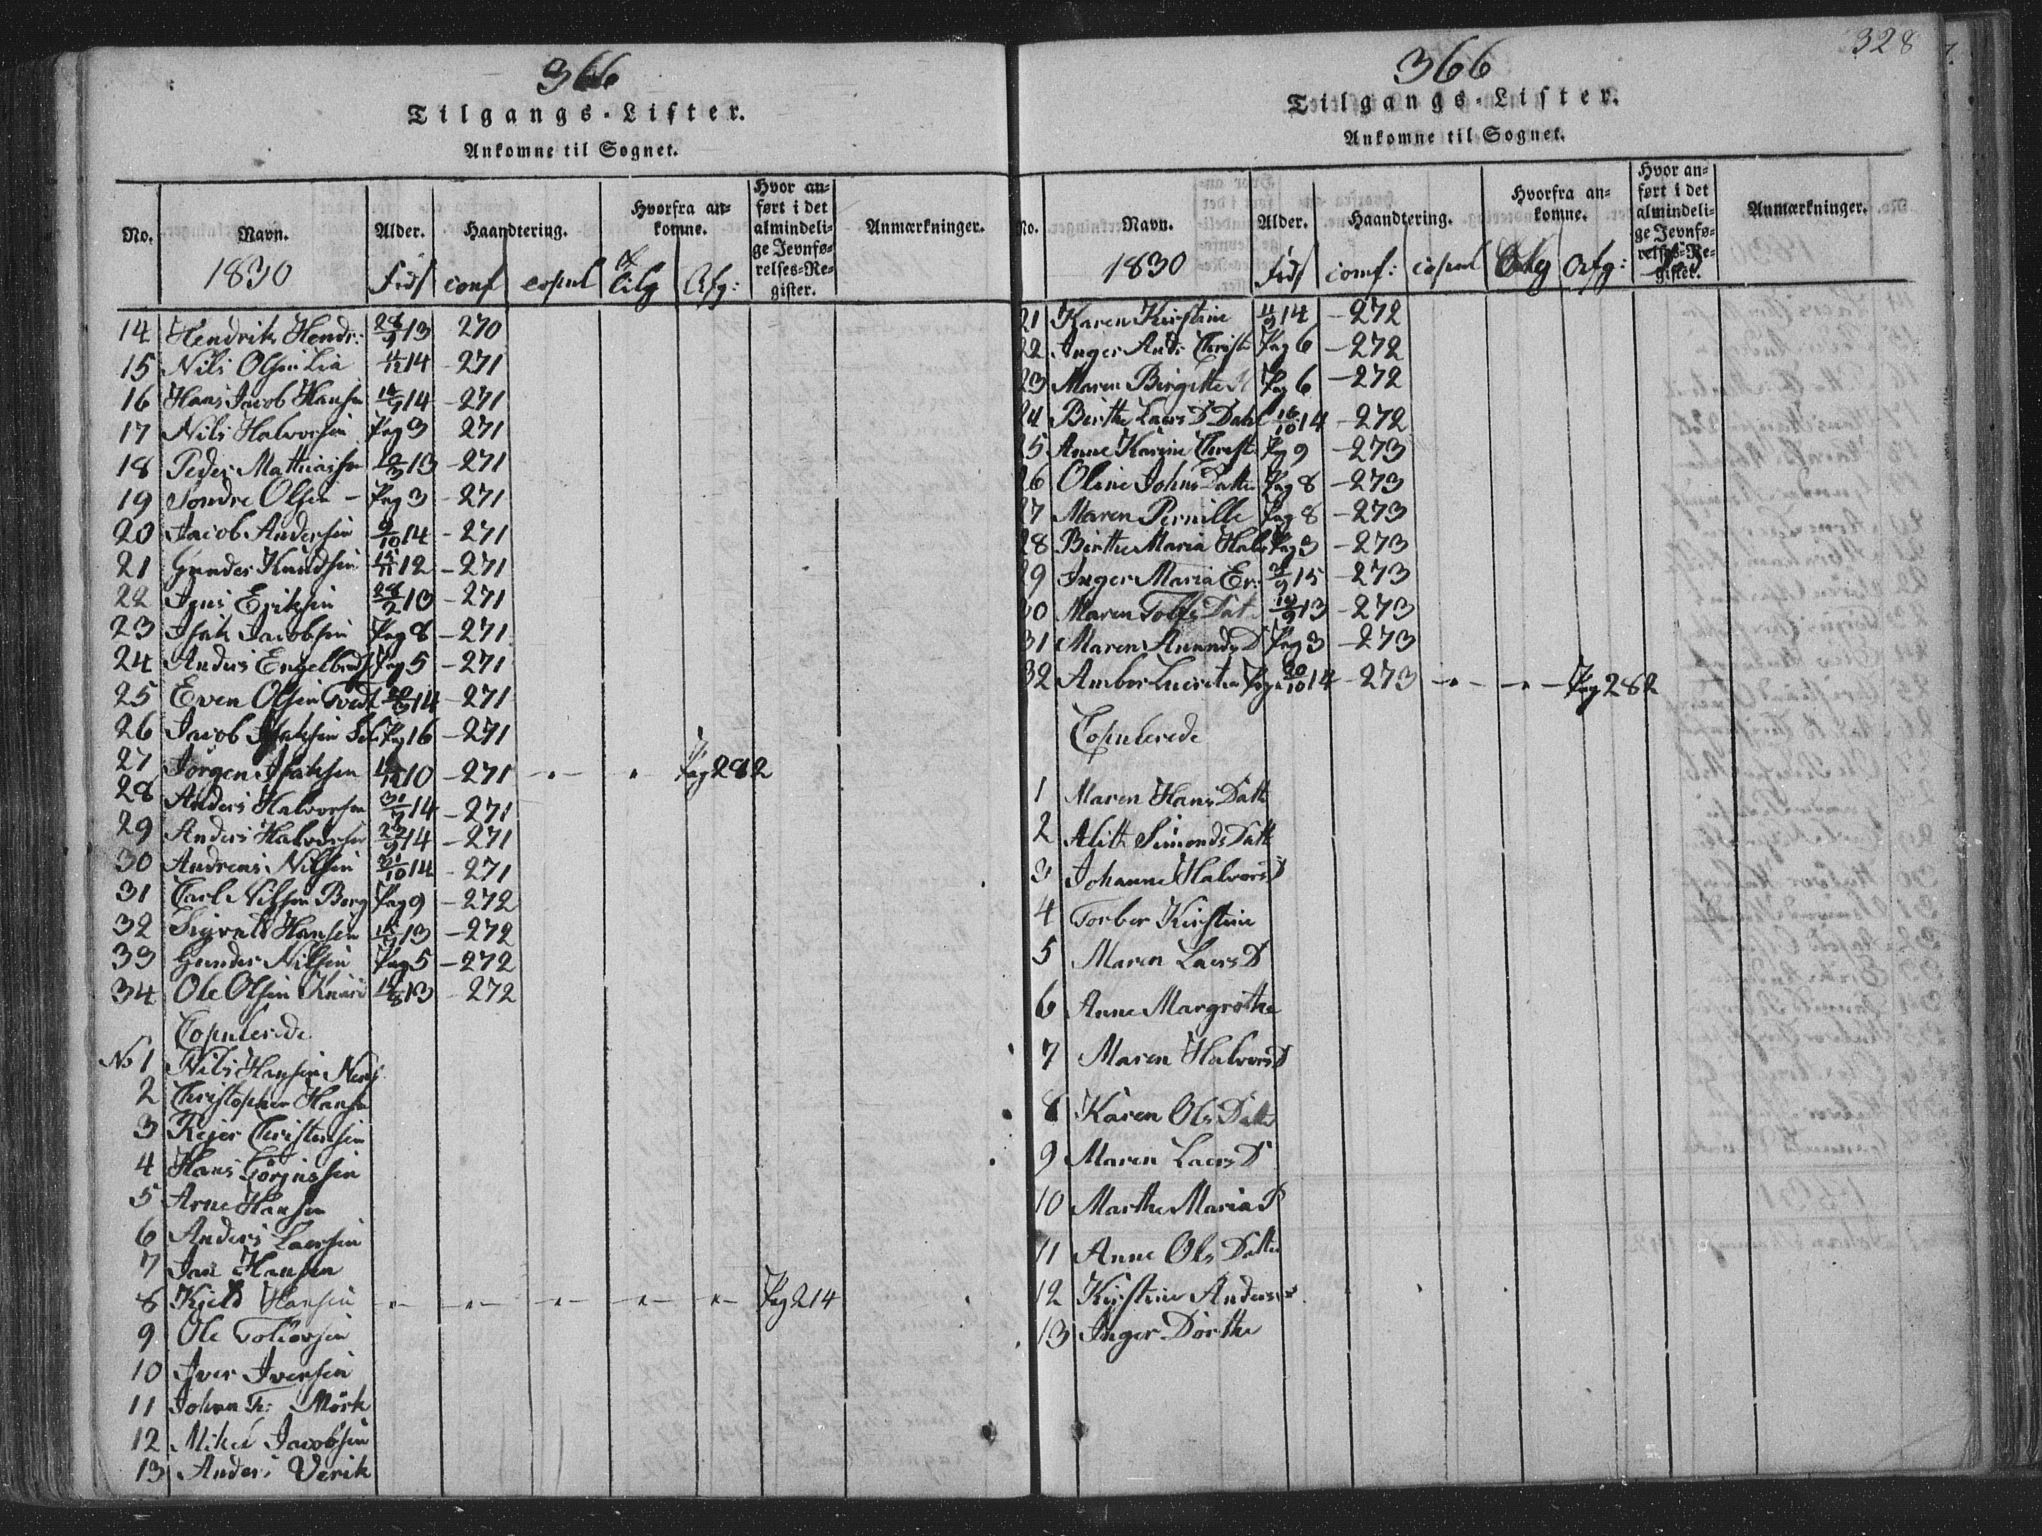 366
Tilgangs-Lister.
Ankomne til Sognet.
No. Navn. Alder. Haandtering. Hvorfra ankomne. Hvor anført i det almindelige Jevnførelses-Register. Anmærkninger.
1830 conf copul tilg Afg:
14 Hendrik Hendr: 13 270
15 Nils Olsen Lia 14 -271
16 Hans Jacob Hansen 14 -271
17 Nils Halvorsen Pag 3 271
18 Peder Mathiassen 13 -271
19 Sondre Olsen - Pag 3 -271
20 Jacob Andersen 9/10 14 -271
21 Gunder Knudsen 12 -271
22 Jens Eriksen 28/2 13 -271
23 Isak Jacobsen Pag 8 -271
24 Anders Engelbredt Pag 5 -271
25 Even Olsen Tvedt 14 -271
26 Jacob Isaksen Pag 16 -271
27 Jörgen Isaksen 10 -271 Pag 282
28 Anders Halvorsen 14 -271
29 Anders Halvorsen 14 -271
30 Andreas Nilsen 31/10 14 -271
31 Carl Nilsen Borg Pag 9 -272
32 Sigvald Hansen 13 -272
33 Gunder Nilsen Pag 5 -272
34 Ole Olsen 13 272
Copulerede
No 1 Nils Hansen
2 Christopher Hansen
3 Rejer Christensen
4 Hans Görgenssen
5 Arne Hansen
6 Anders Laersen
7 Jan Hansen
8 Kjeld Hansen Pag 214
9 Ole Tollevsen
10 Iver Iversen
11 Johan Fr: Mörk
12 Mikel Jacobsen
13 Anders Verik
328
366
Tilgangs-Lister.
Ankomne til Sognet.
No. Navn. Alder. Haandtering. Hvorfra ankomne. Hvor anført i det almindelige Jevnførelses-Register. Anmærkninger.
1830 conf: copul tilg Afg:
21 Karen Kirstine 14 -272
22 Inger Ands Christi Pag 6 -272
23 Maren Birgitte Pag 6 -272
24 Birthe Laers D Dahl 16/10 14 -272
25 Anne Karine Christ Pag 9 -273
26 Oline Johns Datter Pag 8 -273
27 Maren Pernille Pag 8 -273
28 Birthe Maria Hals Pag 3 -273
29 Inger Maria Er: 15 -273
30 Maren Tolfs Dat 13 -273
31 Maren Anunds D Pag 3 -273
32 Amber Lucretia 20/10 14 -273 Pag 282
Copulerede
1 Maren Hans Datt
2 Aleth Simonds Datt
3 Johanne Halvors D
4 Torber Kirstine
5 Maren Laers D
6 Anne Margrethe
7 Maren Halvors D
8 Karen Ols Datter
9 Maren Laers D
10 Marthe Maria D
11 Anne Ols Datter
12 Kirstine Anders
13 Inger Dorthe